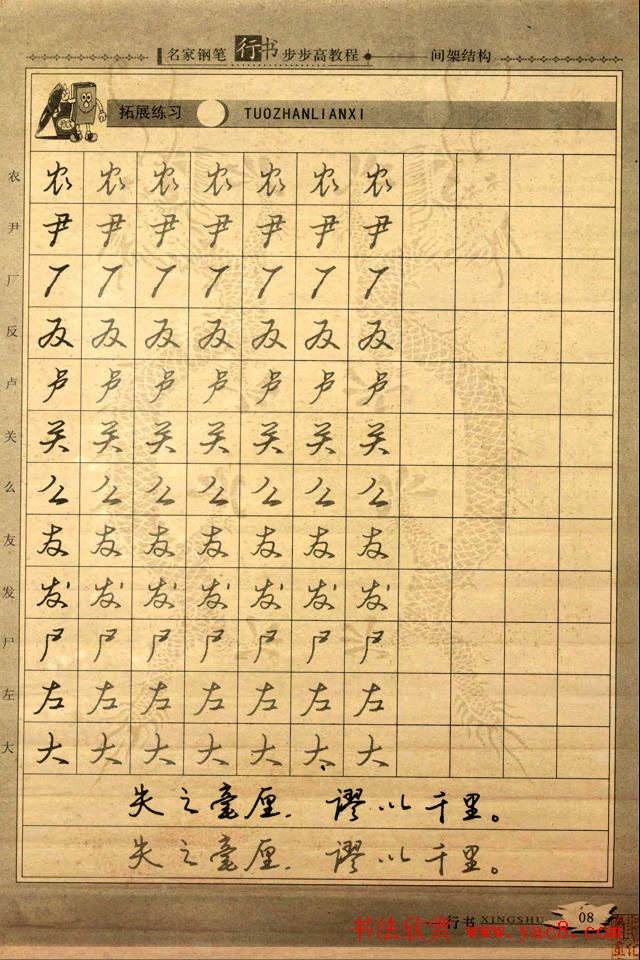 名家钢笔行书步步高教程 间架结构
拓展练习 TUOZHANLIANXI
农 农 农 农 农 农 农 农
尹 尹 尹 尹 尹 尹 尹 尹
厂 厂 厂 厂 厂 厂 厂 厂
反 反 反 反 反 反 反 反
卢 卢 卢 卢 卢 卢 卢 卢
关 关 关 关 关 关 关 关
么 么 么 么 么 么 么 么
友 友 友 友 友 友 友 友
发 发 发 发 发 发 发 发
尸 尸 尸 尸 尸 尸 尸 尸
左 左 左 左 左 左 左 左
大 大 大 大 大 大 大 大
失之毫厘，谬以千里。
失之毫厘，谬以千里。
行书 XINGSHU 08
书法欣赏 www.yac8.com